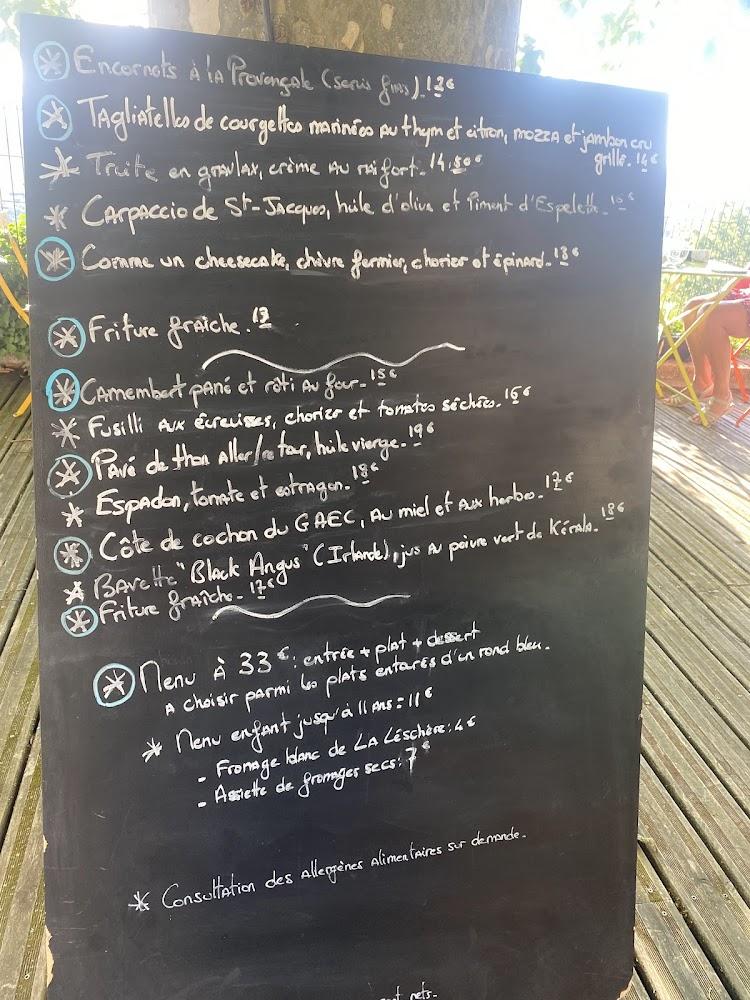 Encornets à la Provençale (servis froids). 12€
Tagliatelles de courgettes marinées au thym et citron, mozza et jambon cru
grillé. 14€
Truite en gravlax, crème au raifort. 14.50€
Carpaccio de St-Jacques, huile d'olive et Piment d'Espelette.
Comme un cheesecake, chèvre fermier, chorizo et épinard. 13€
Friture fraîche. 13
Camembert pané et rôti au four. 15€
Fusilli aux écrevisses, chorizo et tomates séchées. 16€
Pavé de thon aller/retour, huile vierge. 19€
Espadon, tomate et estragon. 18€
Côte de cochon du GAEC, au miel et aux herbes. 17€
Bavette "Black Angus" (Irlande), jus au poivre vert de Kérala. 18€
Friture fraîche. 17€
Menu à 33€: entrée + plat + dessert
à choisir parmi les plats entourés d'un rond bleu.
Menu enfant jusqu'à 11 ans: 11€
- Fromage blanc de La Léschère: 4€
- Assiette de fromages secs: 7€
Consultation des allergènes alimentaires sur demande.
nets.